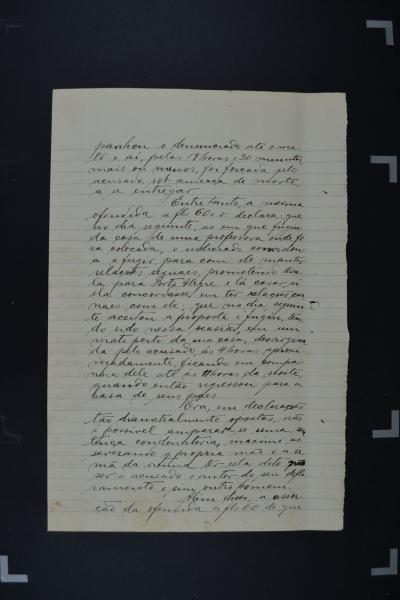 panhou o denunciado até o ma-
to e aí, pelas 19 horas e 30 minutos,
mais ou menos, foi forçada pelo
acusado, sob ameaça de morte,
a se entregar.
Entretanto, a mesma
ofendida a fls 60 v declara que
no dia seguinte, ao em que fugiu
da casa de uma professora onde fo-
ra colocada, o indiciado convidou-
a a fugir, para com ele manter
relações sexuaes, prometendo leva-
la para Porto Alegre e lá casar, si
ela concordasse em ter relações car-
naes com ele; que no dia seguin-
te aceitou a proposta e fugiu, ten-
do sido nessa ocasião, em um
mato perto da sua casa, desvirgina-
da pelo acusado, ás 4 horas aproxi-
madamente, ficando em compa-
nhia dele até ás 11 horas da noite,
quando então regressou para a
casa de seus paes.
Ora, em declarações
tão diametralmente opostas, não
é possivel amparar-se uma sen-
tença condenatoria, maxime as-
severando a propria mãe e a ir-
mã da ofendida ter esta dito não
ser o acusado o autor de seu deflo-
ramento e sim outro homem.
Alem disso, a asser-
ção da ofendida a fls 60 de que